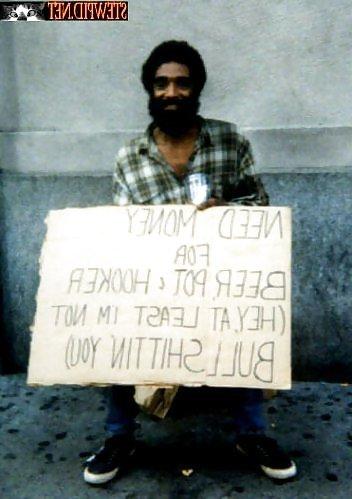 STEWPID.NET
NEED MONEY
FOR
BEER, POT & HOOKER
(HEY, AT LEAST I'M NOT
BULLSHITTIN' YOU)